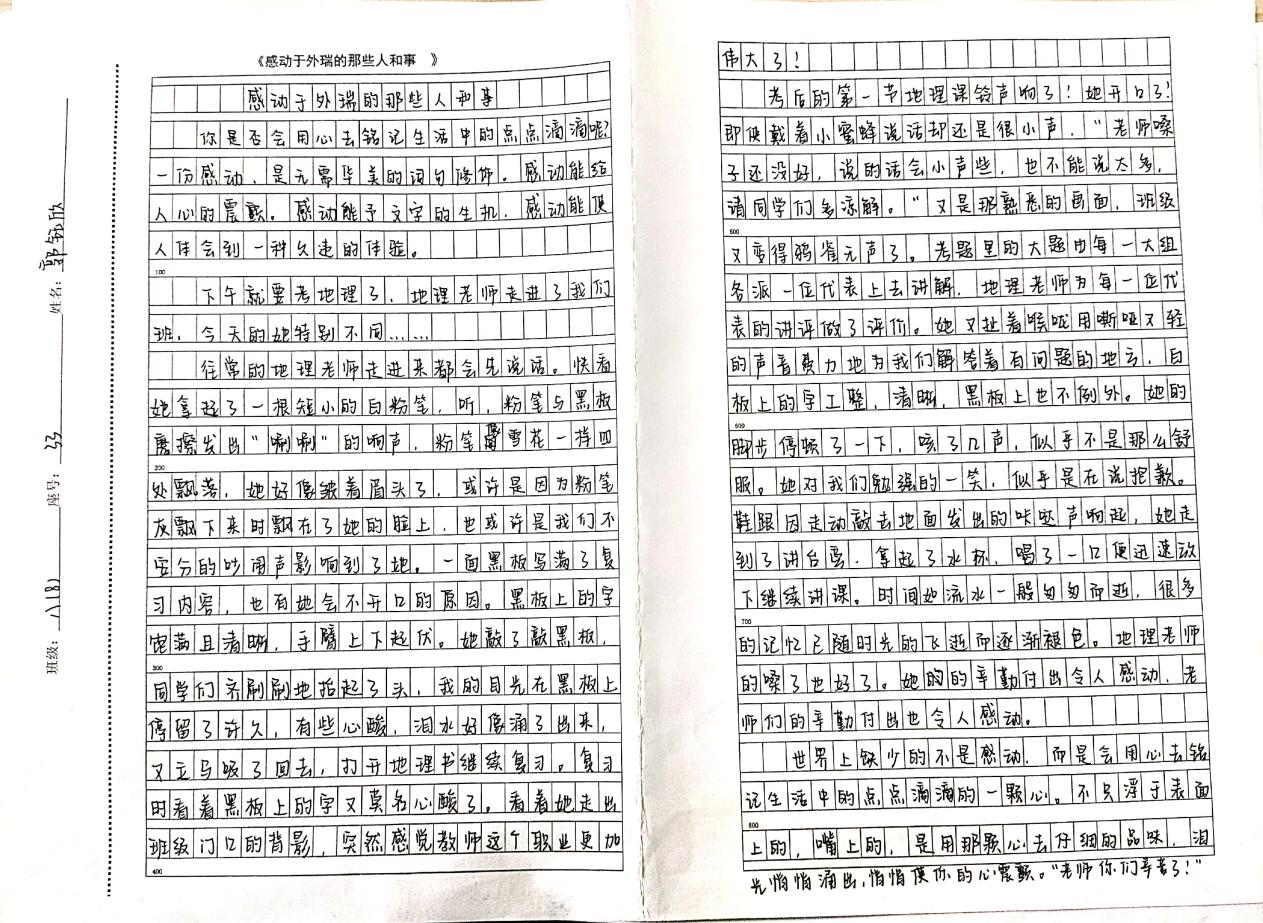 《感动于外瑞的那些人和事 》
班级： 八(8) 座号： 33 姓名：
感动于外瑞的那些人和事
你是否会用心去铭记生活中的点点滴滴呢?
一份感动，是无需华美的词句修饰。感动能给
人心的震颤。感动能予文字的生机，感动能使
人体会到一种久违的体验。
100
下午就要考地理了，地理老师走进了我们
班，今天的她特别不同……
往常的地理老师走进来都会先说话。快看
她拿起了一根短小的白粉笔，听，粉笔与黑板
磨擦发出“唰唰”的响声，粉笔 雪花一样四
200
处飘落，她好像皱着眉头了，或许是因为粉笔
灰飘下来时飘在了她的脸上，也或许是我们不
安分的吵闹声影响到了她。一面黑板写满了复
习内容，也有她会不开口的原因。黑板上的字
饱满且清晰，手臂上下起伏。她敲了敲黑板，
300
同学们齐刷刷地抬起了头，我的目光在黑板上
停留了许久，有些心酸，泪水好像涌了出来，
又立马吸了回去，打开地理书继续复习。复习
时看着黑板上的字又莫名心酸了。看着她走出
班级门口的背影，突然感觉教师这个职业更加
400
伟大了！
考后的第一节地理课铃声响了！她开口了！
即使戴着小蜜蜂说话却还是很小声，“老师嗓
子还没好，说的话会小声些，也不能说太多，
请同学们多谅解。”又是那熟悉的画面，班级
500
又变得鸦雀无声了。考题里的大题由每一大组
各派一位代表上去讲解，地理老师为每一位代
表的讲评做了评价。她又扯着喉咙用嘶哑又轻
的声音费力地为我们解答着有问题的地方，白
板上的字工整，清晰，黑板上也不例外。她的
600
脚步停顿了一下，咳了几声，似乎不是那么舒
服。她对我们勉强的一笑，似乎是在说抱歉。
鞋跟因走动敲击地面发出的咔哒声响起，她走
到了讲台旁，拿起了水杯，喝了一口便迅速放
下继续讲课。时间如流水一般匆匆而逝，很多
700
的记忆已随时光的飞逝而逐渐褪色。地理老师
的嗓子也好了。她的的辛勤付出令人感动，老
师们的辛勤付出也令人感动。
世界上缺少的不是感动，而是会用心去铭
记生活中的点点滴滴的一颗心。不只浮于表面
800
上的，嘴上的，是用那颗心去仔细的品味，泪
光悄悄涌出，悄悄使你的心震颤。“老师你们辛苦了！”